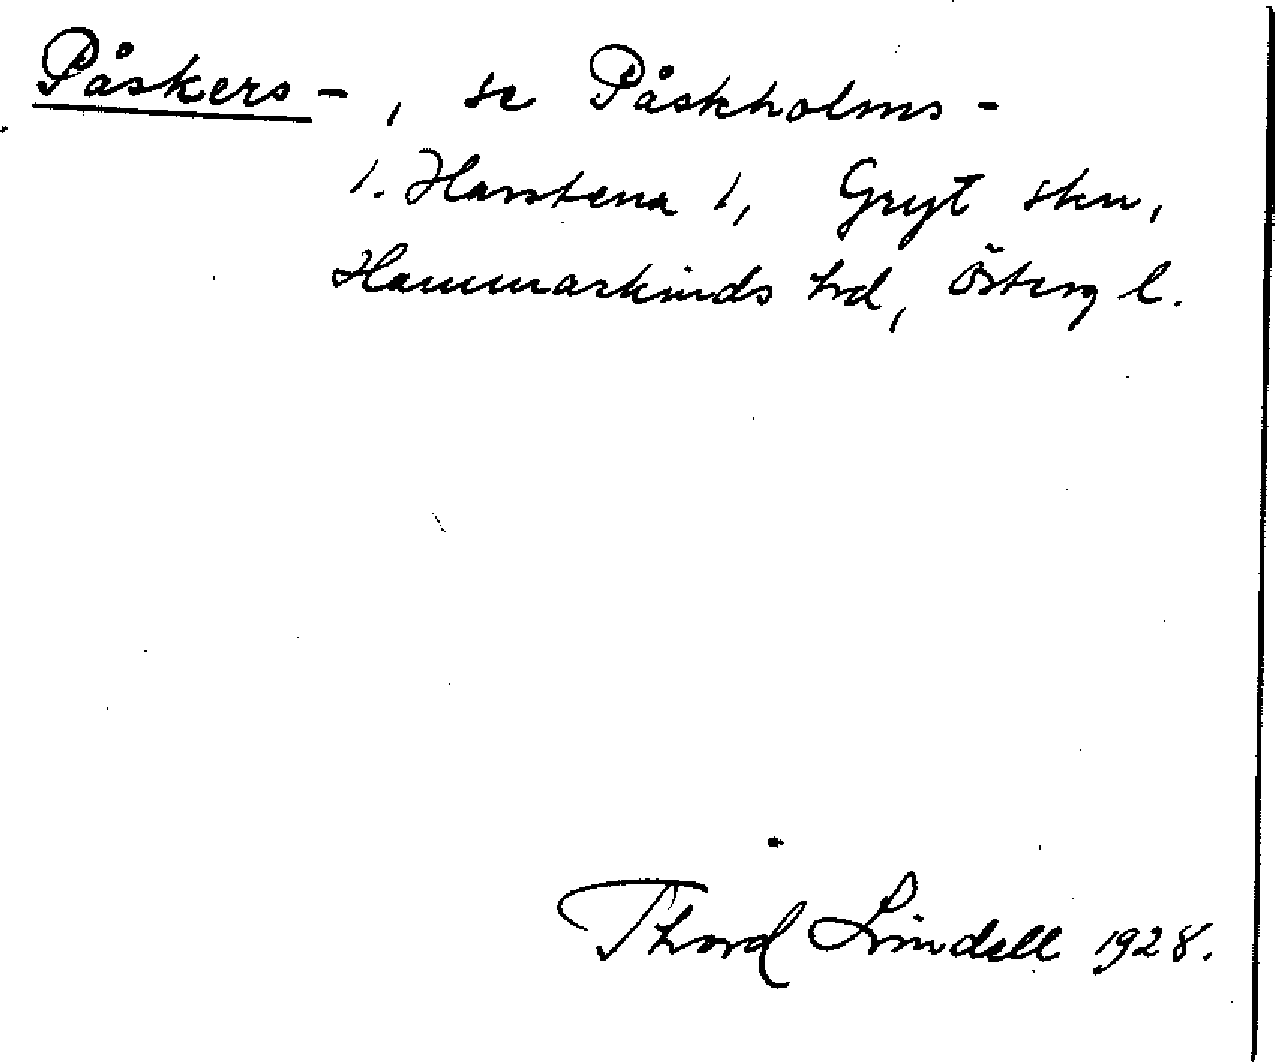 Påskers-, se Påskholms-
1. Harstena 1, Gryt skn,
Hammarkinds hd, Österg l.
Thord Lindell 1928.